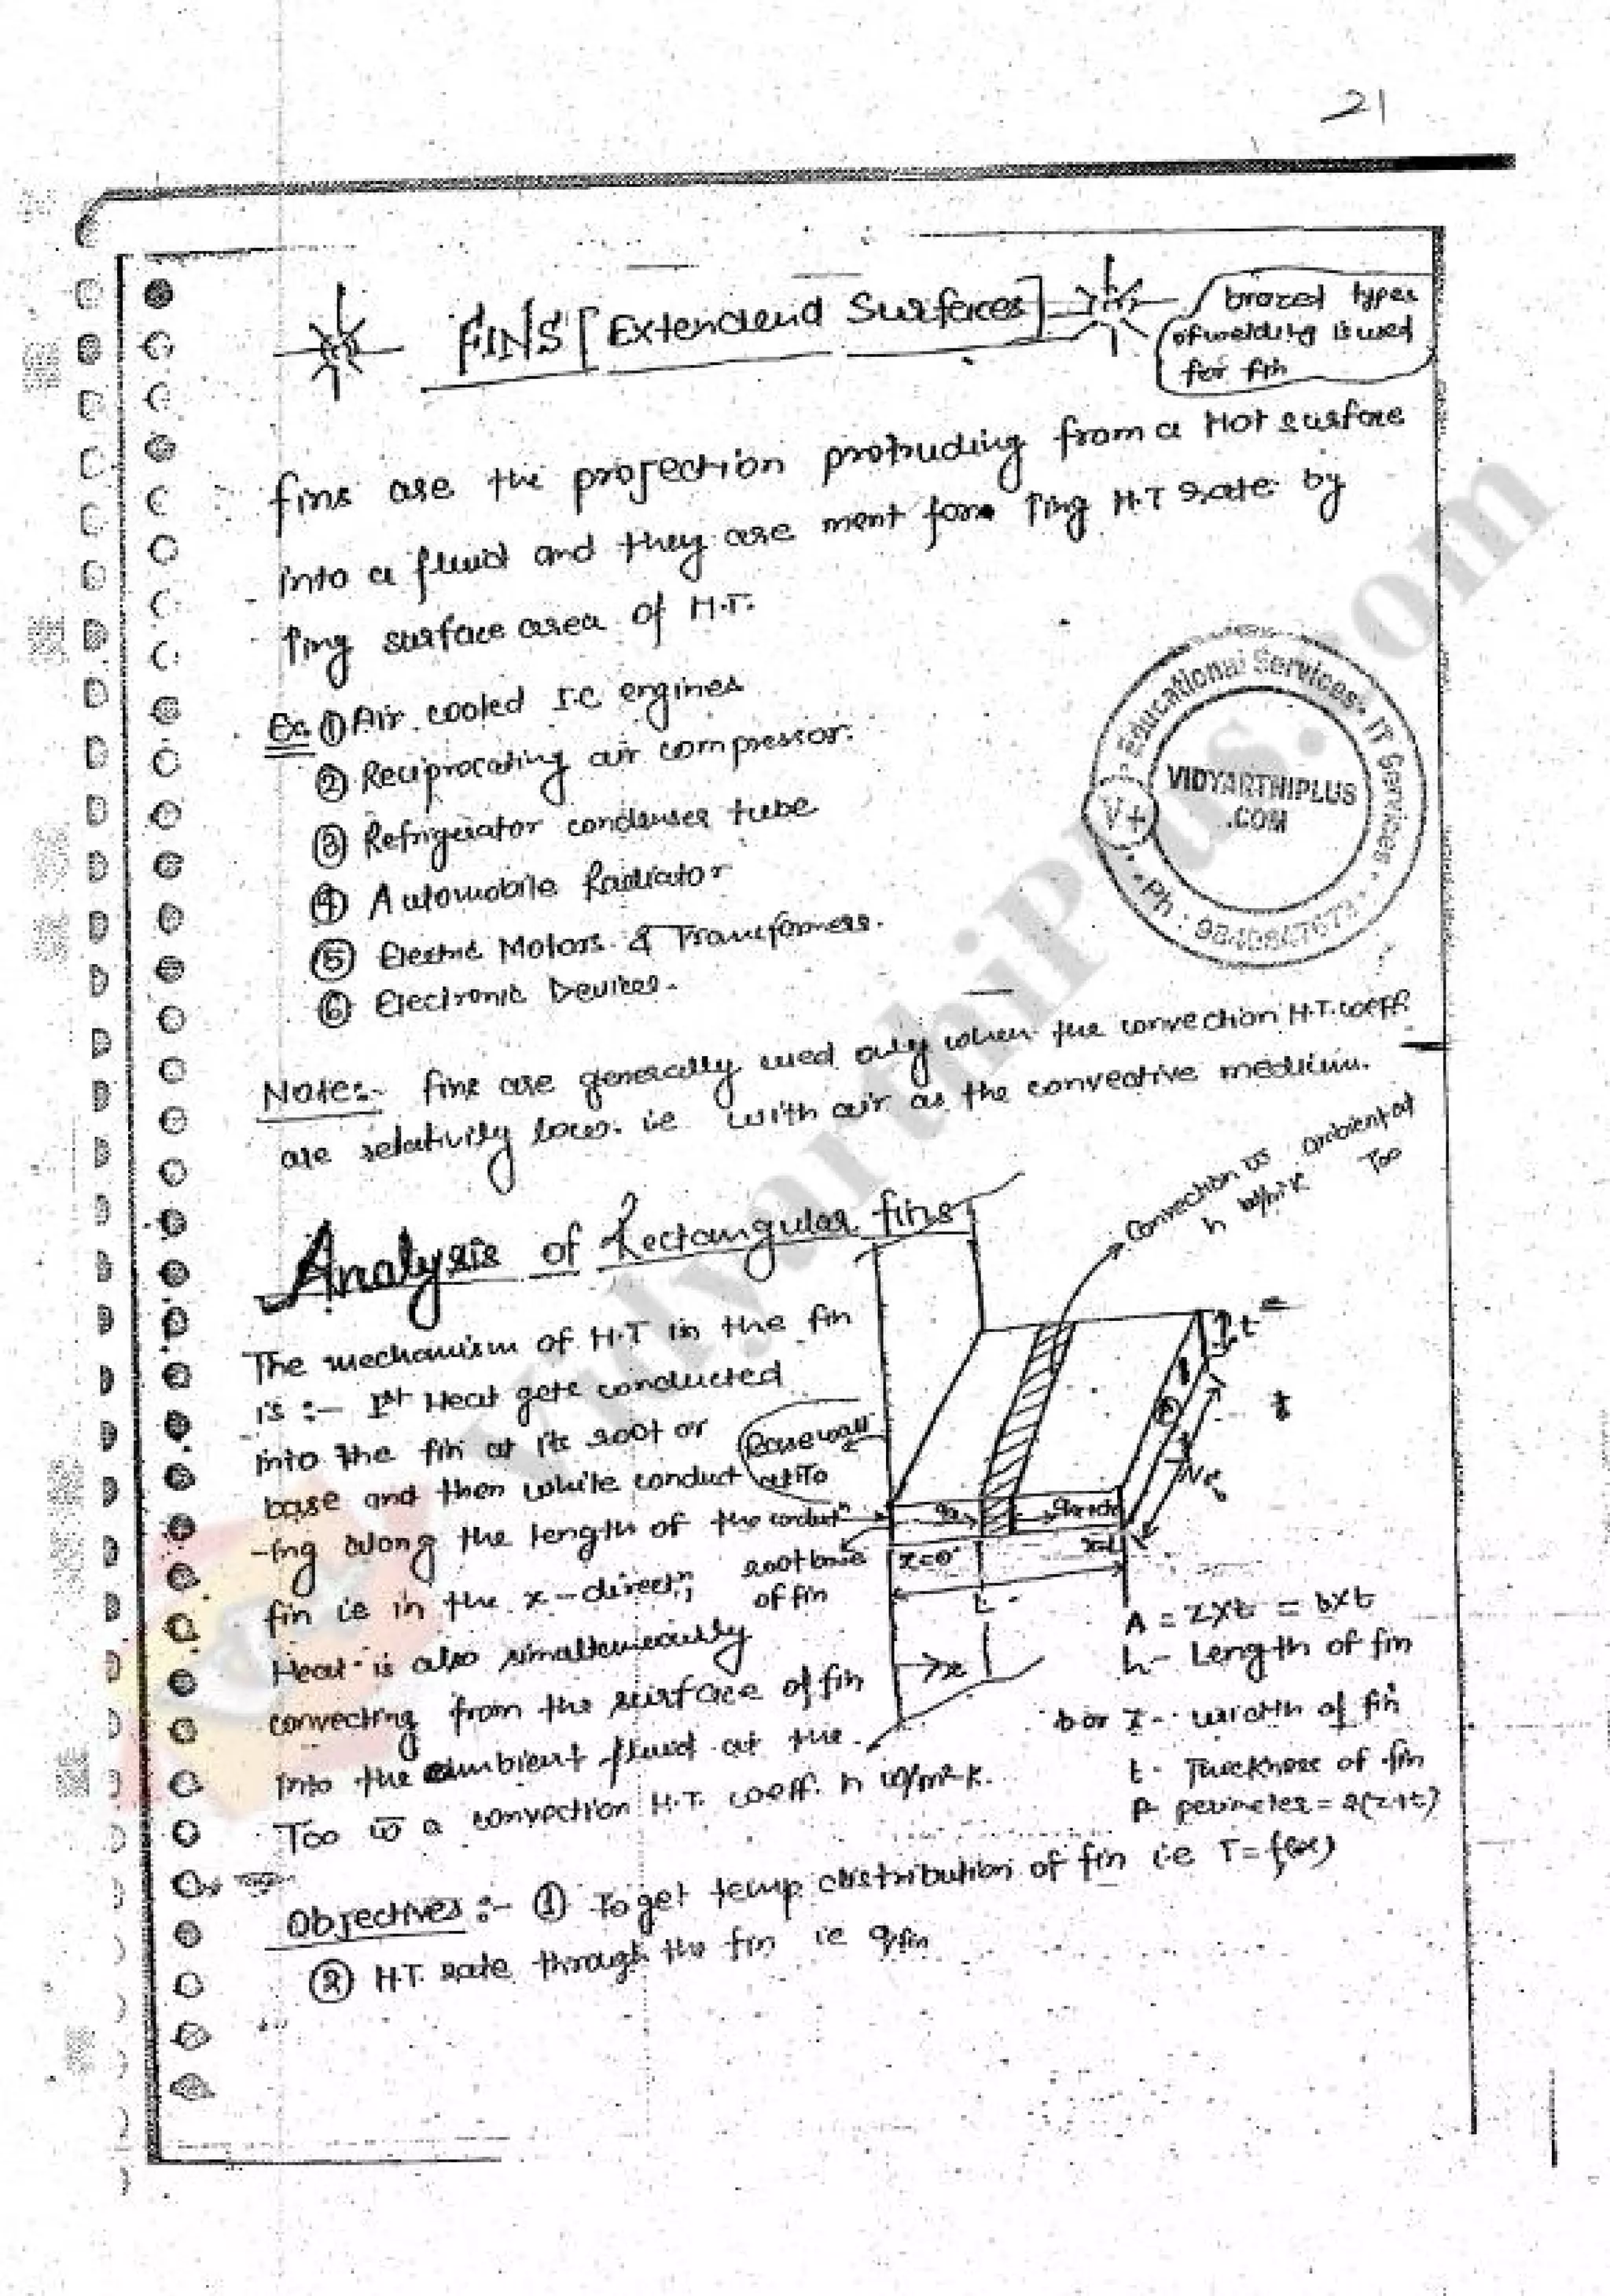 21
FINS [Extendend Surfaces]
brazed types
of welding is used
for fin
fins are the projection protruding from a Hot surface
into a fluid and they are ment for ↑ing H.T rate by
↑ing surface area of H.T.
Ex. ① Air cooled I.C engines
② Reciprocating air compressor.
③ Refrigerator condenser tube
④ Automobile Radiator
⑤ Electric Motors & Transformers.
⑥ Electronic Devices.
Educational Services • IT Services
VIDYARTHIPLUS
.COM
V+
Ph :
VidyarthiPlus.com
Note:- fins are generally used only when the convection H.T. coeff.
are relativily low. ie with air as the convective medium.
Analysis of Rectangular fins
Convection w̅ ambient at
h w/m²k T∞
The mechanism of H.T in the fin
is :- Ist Heat gets conducted
into the fin at its root or
base and then while conduct
-ing along the length of the
fin ie in the x-directn,
Heat is also simalteneously
convecting from the surface of fin
into the ambient fluid at the
T∞ w̅ a convection H.T. coeff. h w/m²-k.
Base wall
at To
root base
of fin
x=0
x=L
L
→x
t
A = Z×t = b×t
L- Length of fin
b or Z - width of fin
t - Thickness of fin
P- perimeter = 2(z+t)
Objectives :- ① To get temp. distribution of fin i.e T = f(x)
② H.T. rate through the fin ie qfin